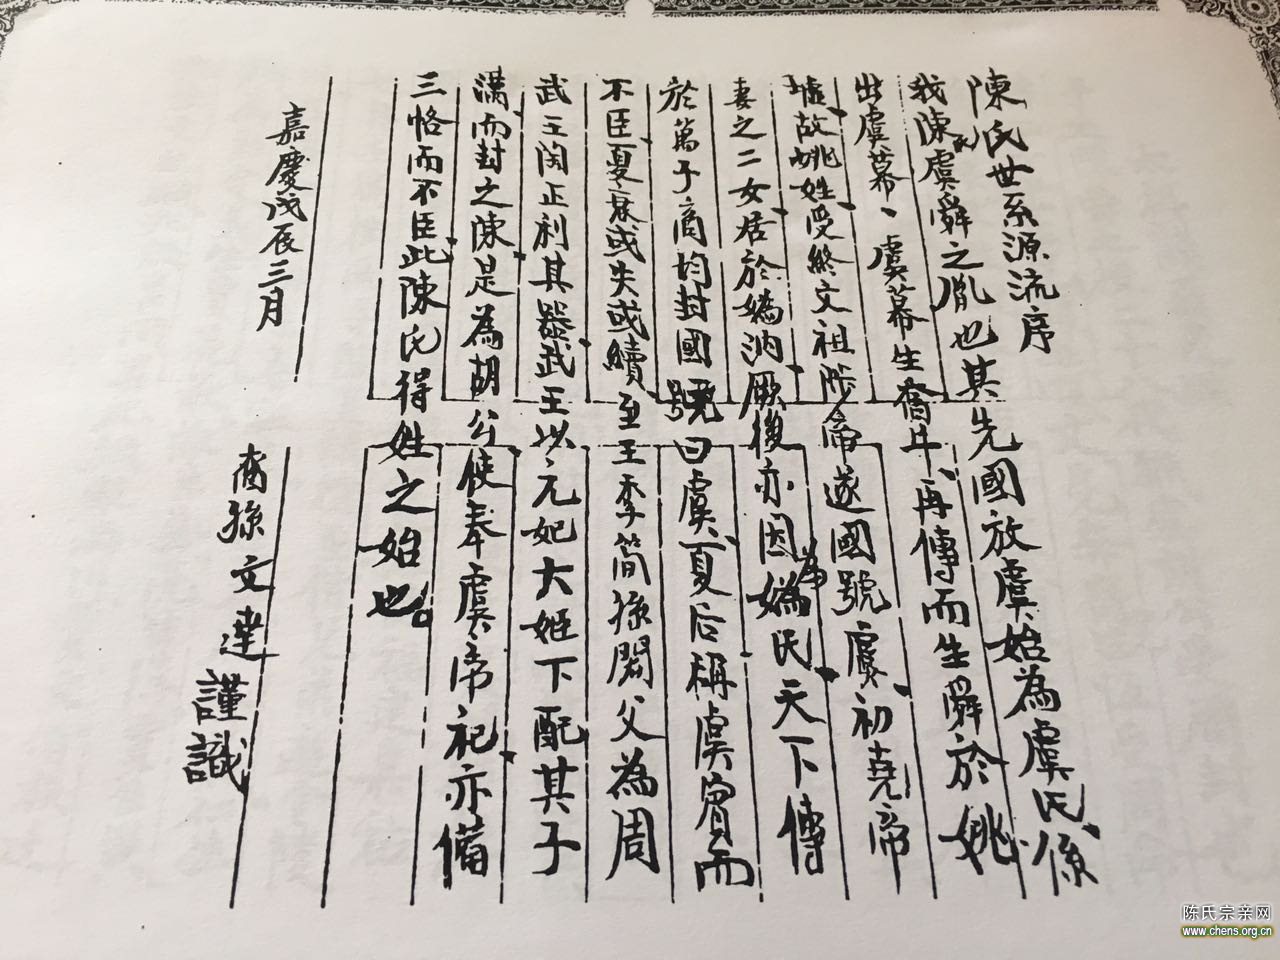 陳氏世系源流序
我陳氏虞舜之胤也其先國放虞始為虞氏係
出虞幕、虞幕生喬牛、再傳而生舜於姚
墟、故姚姓受終文祖陟帝遂國號虞、初堯帝
妻之二女居於媯汭厥後亦因為媯氏天下傳
於萬子商均封國號曰虞夏后稱虞賓而
不臣夏衰或失或續至王季簡孫閼父為周
武王陶正利其器武王以元妃大姬下配其子
滿而封之陳是為胡公使奉虞帝祀亦備
三恪而不臣此陳氏得姓之始也。
嘉慶戊辰三月
裔孫文達謹識
陈氏宗亲网
www.chens.org.cn